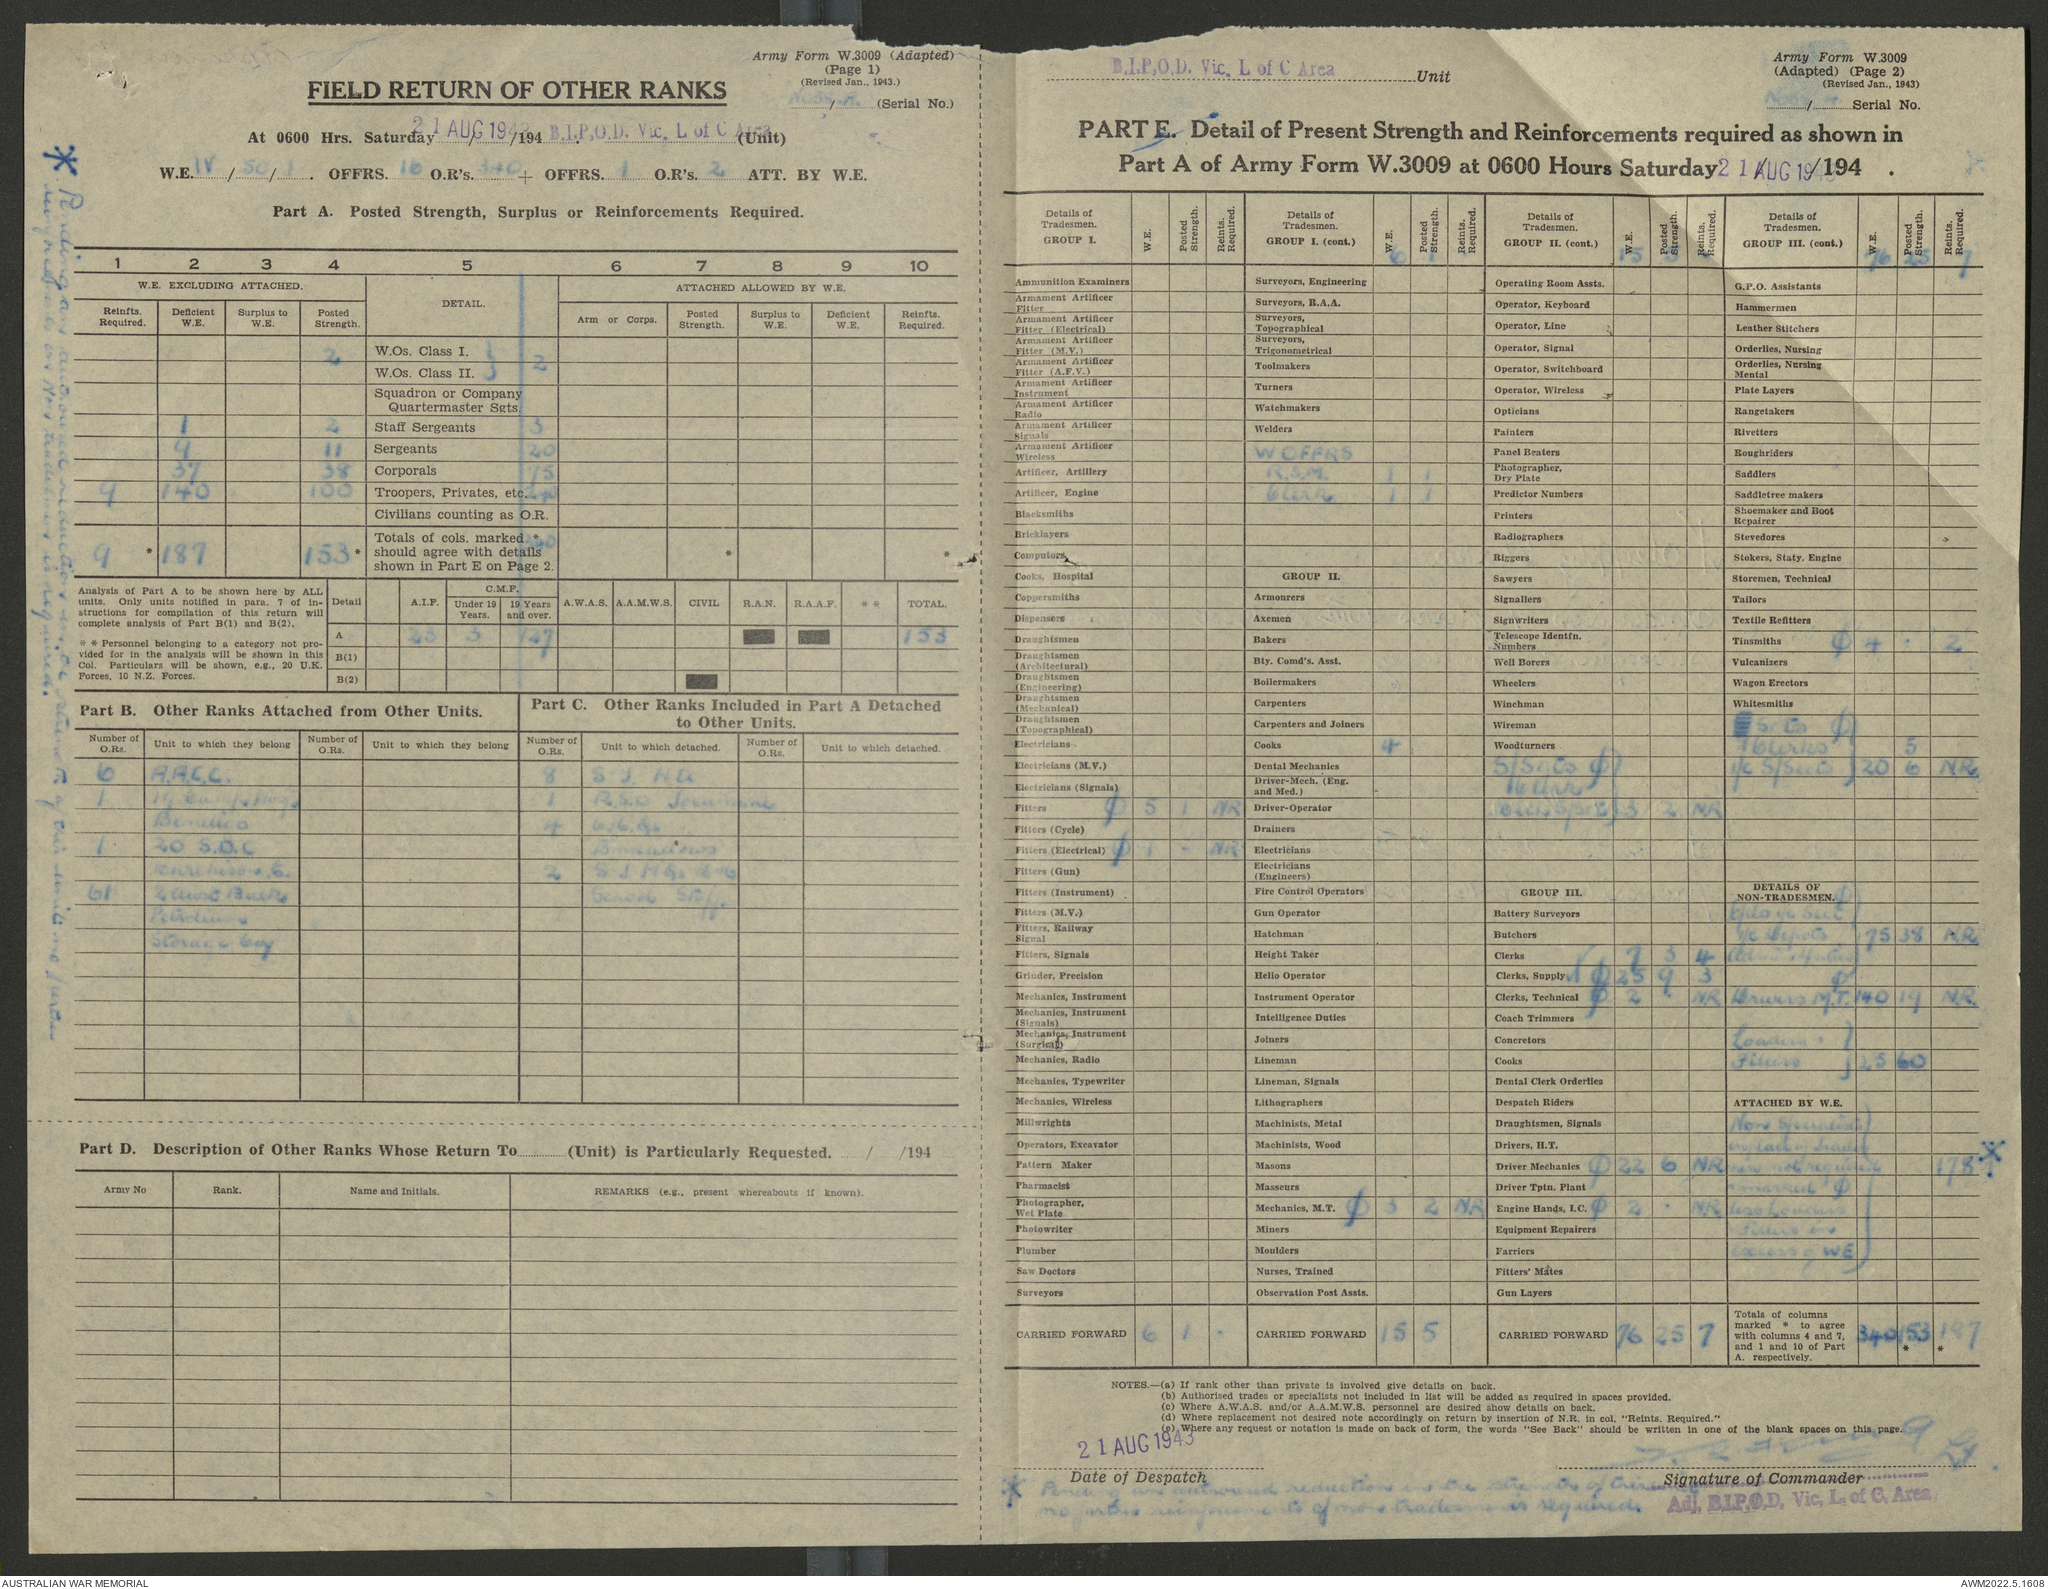 Army Form W.3009 (Adapted)
(Page 1)
(Revised Jan., 1943.)
FIELD RETURN OF OTHER RANKS
/ (Serial No.)
At 0600 Hrs. Saturday 21 AUG 1943 /194 . B.I.P.O.D. Vic. L of C Area (Unit)
W.E. IV / 50 / 1 . OFFRS. 16 O.R's. 340 + OFFRS. 1 O.R's. 2 ATT. BY W.E.
Part A. Posted Strength, Surplus or Reinforcements Required.
1 2 3 4 5 6 7 8 9 10
W.E. EXCLUDING ATTACHED. DETAIL. ATTACHED ALLOWED BY W.E.
Reinfts. Required. Deficient W.E. Surplus to W.E. Posted Strength. Arm or Corps. Posted Strength. Surplus to W.E. Deficient W.E. Reinfts. Required.
2 W.Os. Class I. } 2
W.Os. Class II.
Squadron or Company
Quartermaster Sgts.
1 2 Staff Sergeants 3
9 11 Sergeants 20
37 38 Corporals 75
9 140 100 Troopers, Privates, etc. 240
Civilians counting as O.R.
9 * 187 153 * Totals of cols. marked * should agree with details shown in Part E on Page 2. 340 * *
Analysis of Part A to be shown here by ALL
units. Only units notified in para. 7 of in-
structions for compilation of this return will
complete analysis of Part B(1) and B(2).
* * Personnel belonging to a category not pro-
vided for in the analysis will be shown in this
Col. Particulars will be shown, e.g., 20 U.K.
Forces, 10 N.Z. Forces.
Detail A.I.F. C.M.F. Under 19 Years. 19 Years and over. A.W.A.S. A.A.M.W.S. CIVIL R.A.N. R.A.A.F. * * TOTAL.
A 23 3 127 153
B(1)
B(2)
Part B. Other Ranks Attached from Other Units.
Part C. Other Ranks Included in Part A Detached
to Other Units.
Number of O.Rs. Unit to which they belong Number of O.Rs. Unit to which they belong Number of O.Rs. Unit to which detached. Number of O.Rs. Unit to which detached.
6 A.A.C.C. 8 S.J. HQ
1 1 R.S.O
4
1 20 S.D.C
2
61 2 Bulk School Staff.
Petroleum
Storage Coy
Part D. Description of Other Ranks Whose Return To (Unit) is Particularly Requested. / /194
Army No Rank. Name and Initials. REMARKS (e.g., present whereabouts if known).
* Pending an authorised reduction in the strength of this unit no further
reinforcements or Non tradesmen is required.
B.I.P.O.D. Vic. L of C Area Unit
Army Form W.3009
(Adapted) (Page 2)
(Revised Jan., 1943)
/ Serial No.
PART E. Detail of Present Strength and Reinforcements required as shown in
Part A of Army Form W.3009 at 0600 Hours Saturday 21 AUG 1943 /194 .
Details of Tradesmen. GROUP I. W.E. Posted Strength. Reints. Required.
Ammunition Examiners
Armament Artificer Fitter
Armament Artificer Fitter (Electrical)
Armament Artificer Fitter (M.V.)
Armament Artificer Fitter (A.F.V.)
Armament Artificer Instrument
Armament Artificer Radio
Armament Artificer Signals
Armament Artificer Wireless
Artificer, Artillery
Artificer, Engine
Blacksmiths
Bricklayers
Computors
Cooks, Hospital
Coppersmiths
Dispensers
Draughtsmen
Draughtsmen (Architectural)
Draughtsmen (Engineering)
Draughtsmen (Mechanical)
Draughtsmen (Topographical)
Electricians
Electricians (M.V.)
Electricians (Signals)
Fitters ϕ 5 1 NR
Fitters (Cycle)
Fitters (Electrical) ϕ 1 - NR
Fitters (Gun)
Fitters (Instrument)
Fitters (M.V.)
Fitters, Railway Signal
Fitters, Signals
Grinder, Precision
Mechanics, Instrument
Mechanics, Instrument (Signals)
Mechanics, Instrument (Surgical)
Mechanics, Radio
Mechanics, Typewriter
Mechanics, Wireless
Millwrights
Operators, Excavator
Pattern Maker
Pharmacist
Photographer, Wet Plate
Photowriter
Plumber
Saw Doctors
Surveyors
CARRIED FORWARD 6 1 -
Details of Tradesmen. GROUP I. (cont.) W.E. Posted Strength. Reints. Required.
6 1
Surveyors, Engineering
Surveyors, R.A.A.
Surveyors, Topographical
Surveyors, Trigonometrical
Toolmakers
Turners
Watchmakers
Welders
W OFFRS
R.S.M. 1 1
Clerk 1 1
GROUP II.
Armourers
Axemen
Bakers
Bty. Comd's. Asst.
Boilermakers
Carpenters
Carpenters and Joiners
Cooks 4
Dental Mechanics
Driver-Mech. (Eng. and Med.)
Driver-Operator
Drainers
Electricians
Electricians (Engineers)
Fire Control Operators
Gun Operator
Hatchman
Height Taker
Helio Operator
Instrument Operator
Intelligence Duties
Joiners
Lineman
Lineman, Signals
Lithographers
Machinists, Metal
Machinists, Wood
Masons
Masseurs
Mechanics, M.T. ϕ 3 2 NR
Miners
Moulders
Nurses, Trained
Observation Post Assts.
CARRIED FORWARD 15 5
Details of Tradesmen. GROUP II. (cont.) W.E. Posted Strength. Reints. Required.
15 5
Operating Room Assts.
Operator, Keyboard
Operator, Line
Operator, Signal
Operator, Switchboard
Operator, Wireless
Opticians
Painters
Panel Beaters
Photographer, Dry Plate
Predictor Numbers
Printers
Radiographers
Riggers
Sawyers
Signallers
Signwriters
Telescope Identfn. Numbers
Well Borers
Wheelers
Winchman
Wireman
Woodturners
S/Sgts ϕ
Clerk
3 2 NR
GROUP III.
Battery Surveyors
Butchers
Clerks 7 3 4
Clerks, Supply ϕ 25 9 3
Clerks, Technical ϕ 2 - NR
Coach Trimmers
Concretors
Cooks
Dental Clerk Orderlies
Despatch Riders
Draughtsmen, Signals
Drivers, H.T.
Driver Mechanics ϕ 22 6 NR
Driver Tptn. Plant
Engine Hands, I.C. ϕ 2 - NR
Equipment Repairers
Farriers
Fitters' Mates
Gun Layers
CARRIED FORWARD 76 25 7
Details of Tradesmen. GROUP III. (cont.) W.E. Posted Strength. Reints. Required.
76 25 7
G.P.O. Assistants
Hammermen
Leather Stitchers
Orderlies, Nursing
Orderlies, Nursing Mental
Plate Layers
Rangetakers
Rivetters
Roughriders
Saddlers
Saddletree makers
Shoemaker and Boot Repairer
Stevedores
Stokers, Staty. Engine
Storemen, Technical
Tailors
Textile Refitters
Tinsmiths ϕ 4 - 2
Vulcanizers
Wagon Erectors
Whitesmiths
Sgts ϕ
Clerks 5
i/c S/Sects 20 6 NR
DETAILS OF NON-TRADESMEN.
Cpls i/c Sect ϕ
i/c Depots 75 38 NR
ϕ
Drivers M.T. 140 19 N.R.
Loaders }
Fillers } 25 60
ATTACHED BY W.E.
Non Specialists
178 *
not required
marked ϕ
less Loaders
Fillers in
excess of WE
Totals of columns marked * to agree with columns 4 and 7, and 1 and 10 of Part A. respectively. 340 153 * 187 *
NOTES.—(a) If rank other than private is involved give details on back.
(b) Authorised trades or specialists not included in list will be added as required in spaces provided.
(c) Where A.W.A.S. and/or A.A.M.W.S. personnel are desired show details on back.
(d) Where replacement not desired note accordingly on return by insertion of N.R. in col. "Reints. Required."
(e) Where any request or notation is made on back of form, the words "See Back" should be written in one of the blank spaces on this page.
21 AUG 1943
Date of Despatch
Lt.
Signature of Commander
Adj. B.I.P.O.D. Vic. L. of C. Area
* Pending an authorised reduction in the strength of this
no further reinforcements of non tradesmen is required.
AUSTRALIAN WAR MEMORIAL
AWM2022.5.1608